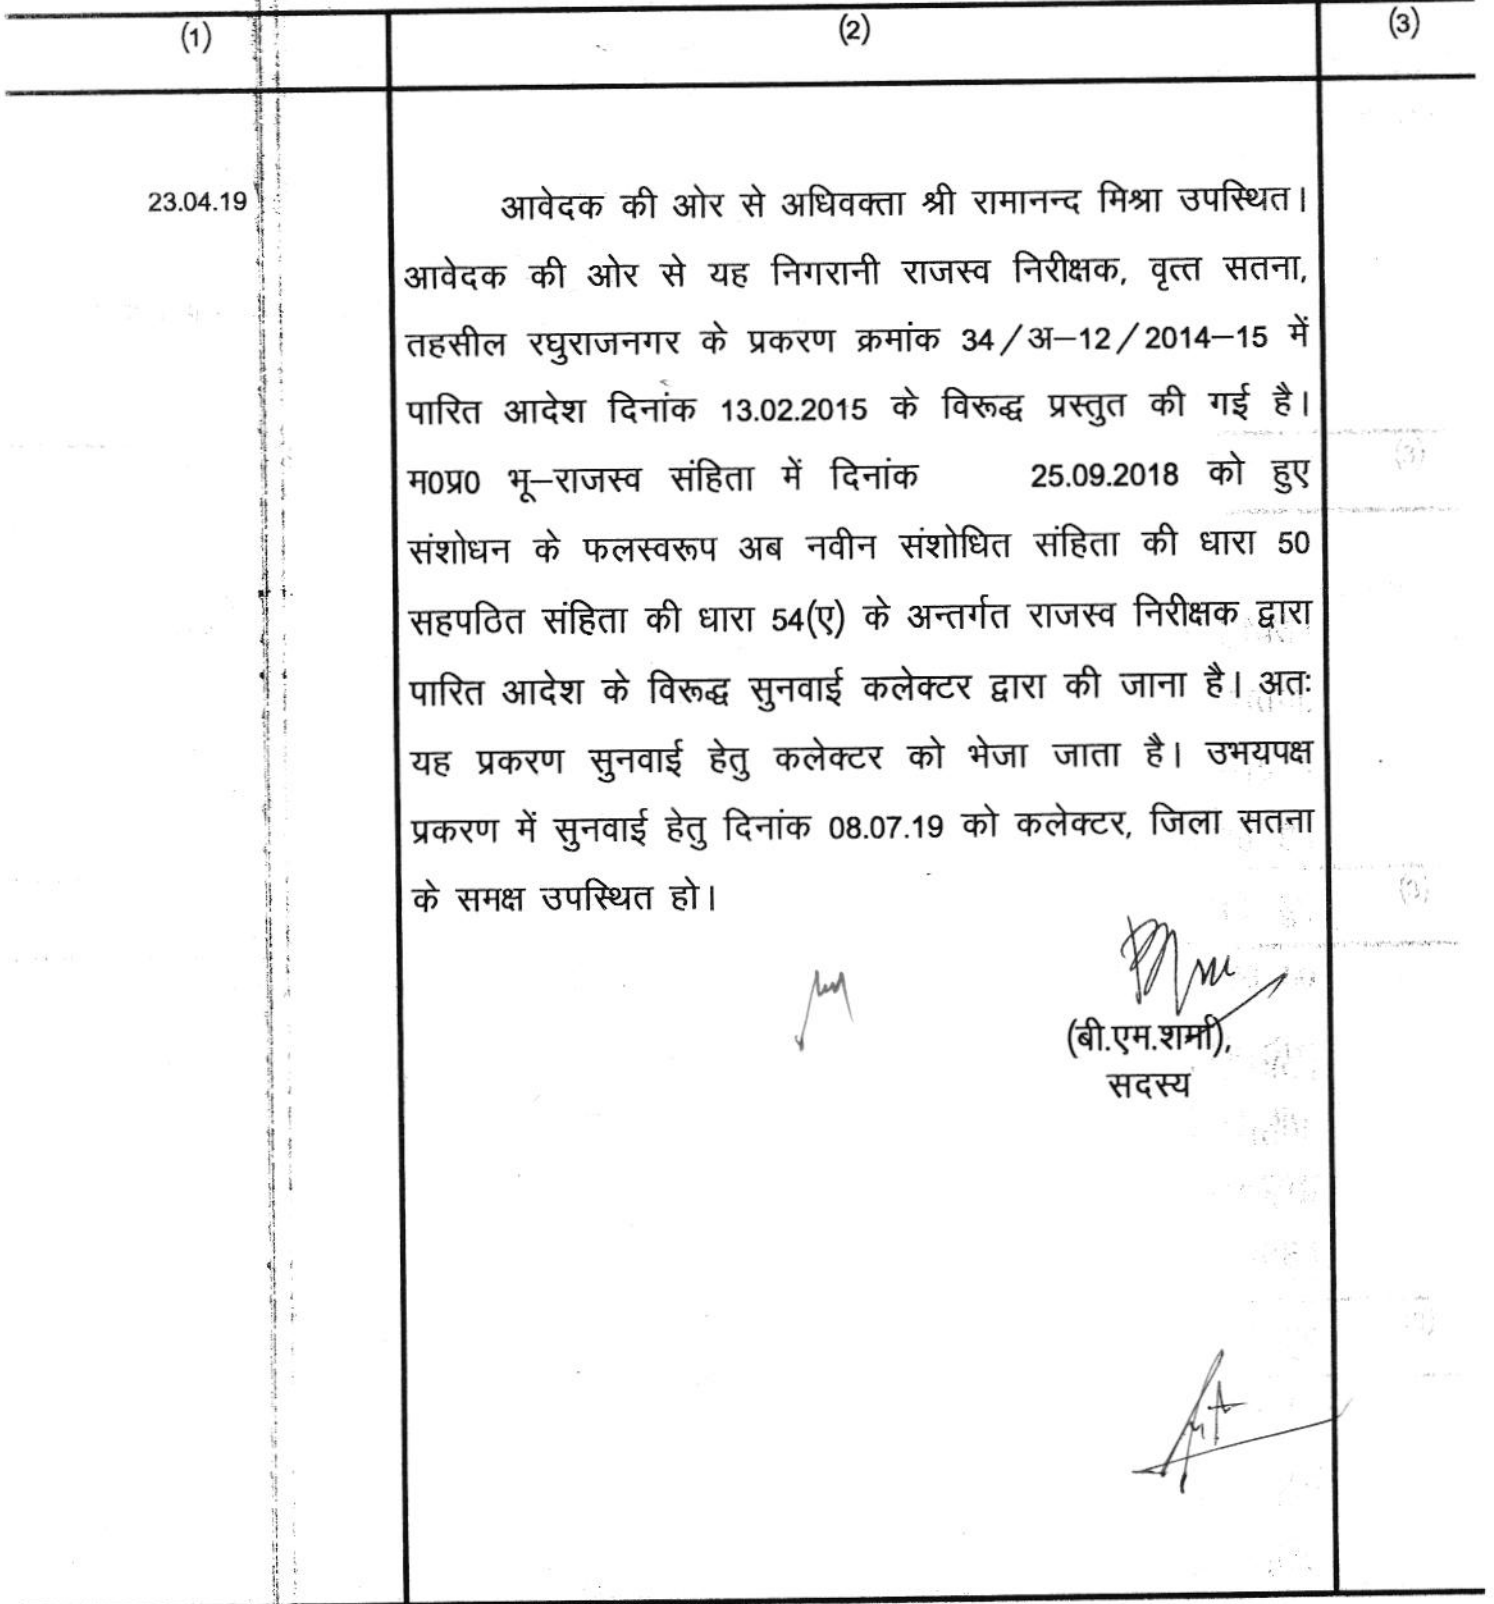 (1) (2) (3)
23.04.19 आवेदक की ओर से अधिवक्ता श्री रामानन्द मिश्रा उपस्थित।
आवेदक की ओर से यह निगरानी राजस्व निरीक्षक, वृत्त सतना,
तहसील रघुराजनगर के प्रकरण क्रमांक 34/अ–12/2014–15 में
पारित आदेश दिनांक 13.02.2015 के विरूद्ध प्रस्तुत की गई है।
म0प्र0 भू–राजस्व संहिता में दिनांक 25.09.2018 को हुए
संशोधन के फलस्वरूप अब नवीन संशोधित संहिता की धारा 50
सहपठित संहिता की धारा 54(ए) के अन्तर्गत राजस्व निरीक्षक द्वारा
पारित आदेश के विरूद्ध सुनवाई कलेक्टर द्वारा की जाना है। अतः
यह प्रकरण सुनवाई हेतु कलेक्टर को भेजा जाता है। उभयपक्ष
प्रकरण में सुनवाई हेतु दिनांक 08.07.19 को कलेक्टर, जिला सतना
के समक्ष उपस्थित हो।
(बी.एम.शर्मा),
सदस्य